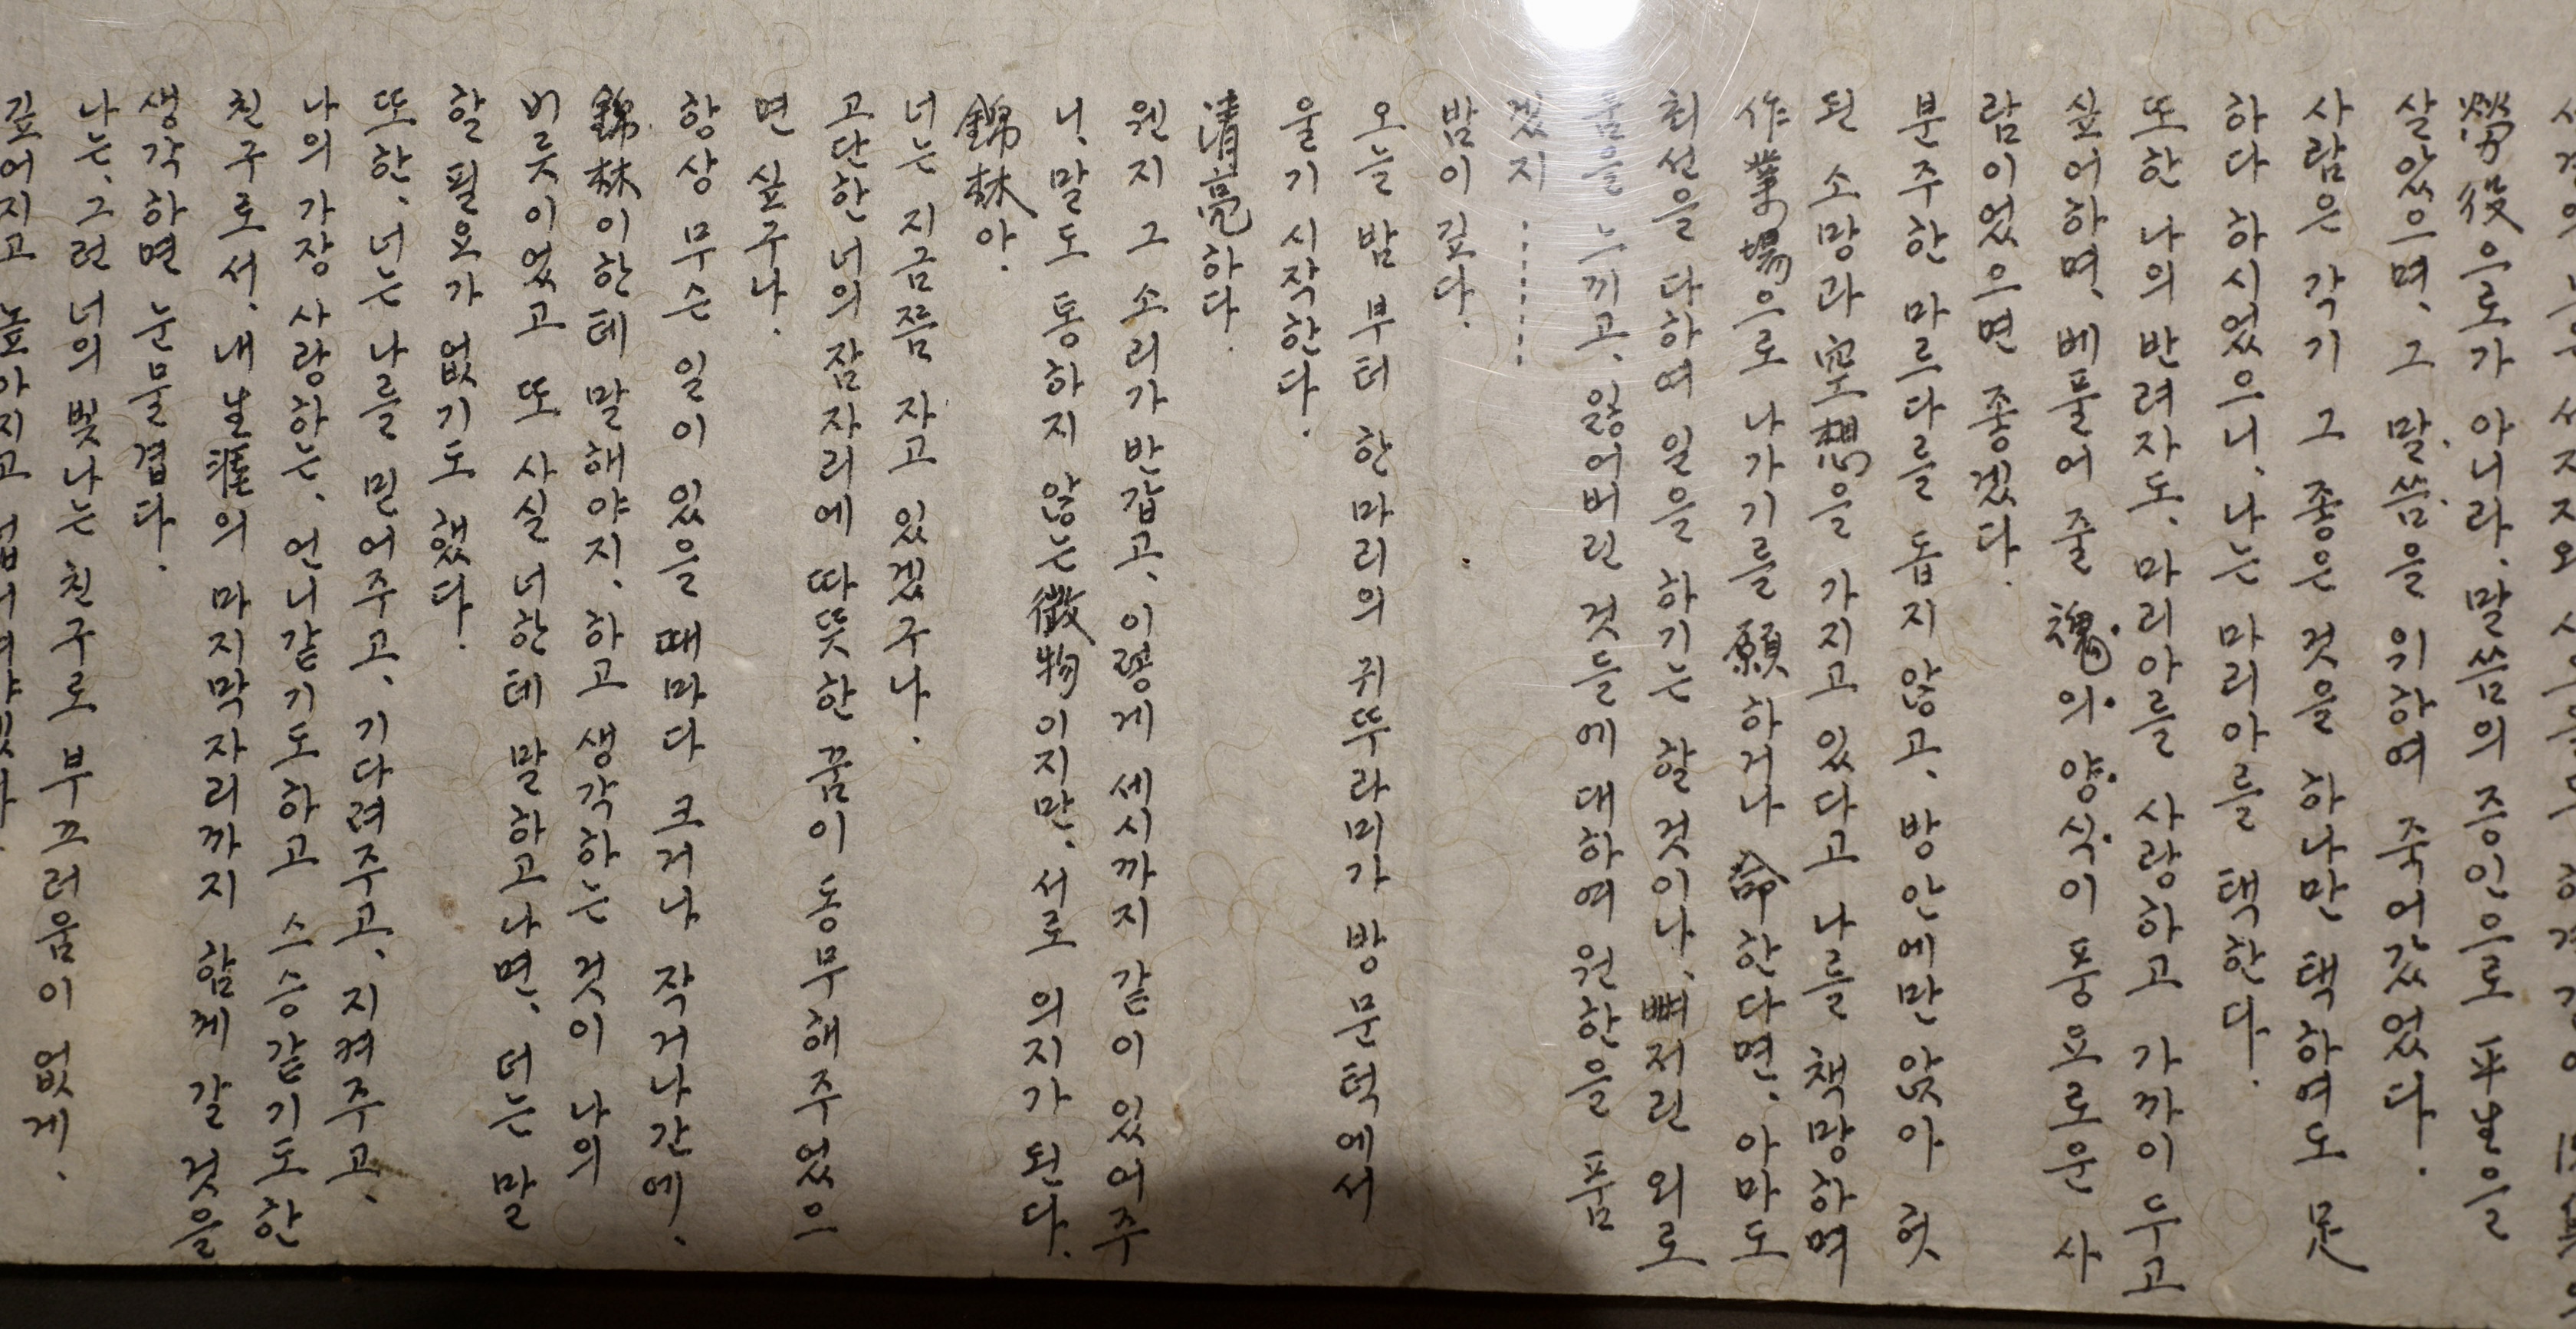 勞役으로가 아니라. 말씀의 증인으로 平生을
살았으며, 그 말씀을 위하여 죽어갔었다.
사람은 각기 그 좋은 것을 하나만 택하여도 足
하다 하시었으니, 나는 마리아를 택한다.
또한 나의 반려자도, 마리아를 사랑하고 가까이 두고
싶어하며, 베풀어 줄 魂의 양식이 풍요로운 사
람이었으면 좋겠다.
분주한 마르다를 돕지 않고, 방안에만 앉아 헛
된 소망과 空想을 가지고 있다고 나를 책망하며
作業場으로 나가기를 願하거나 命한다면, 아마도
최선을 다하여 일을 하기는 할 것이나, 뼈저린 외로
움을 느끼고, 잃어버린 것들에 대하여 원한을 품
겠지 ......
밤이 깊다.
오늘 밤 부터 한마리의 귀뚜라미가 방문턱에서
울기 시작한다.
淸亮하다.
웬지 그 소리가 반갑고, 이렇게 세시까지 같이 있어주
니, 말도 통하지 않는 微物이지만, 서로 의지가 된다.
錦林아.
너는 지금쯤 자고 있겠구나.
고단한 너의 잠자리에 따뜻한 꿈이 동무해 주었으
면 싶구나.
항상 무슨 일이 있을 때마다 크거나 작거나간에,
錦林이한테 말해야지, 하고 생각하는 것이 나의
버릇이었고 또 사실 너한테 말하고나면, 더는 말
할 필요가 없기도 했다.
또한, 너는 나를 믿어주고, 기다려주고, 지켜주고,
나의 가장 사랑하는, 언니같기도 하고 스승같기도 한
친구로서, 내 生涯의 마지막자리까지 함께 갈 것을
생각하면 눈물겹다.
나는, 그런 너의 빛나는 친구로 부끄러움이 없게,
깊어지고 높아지고